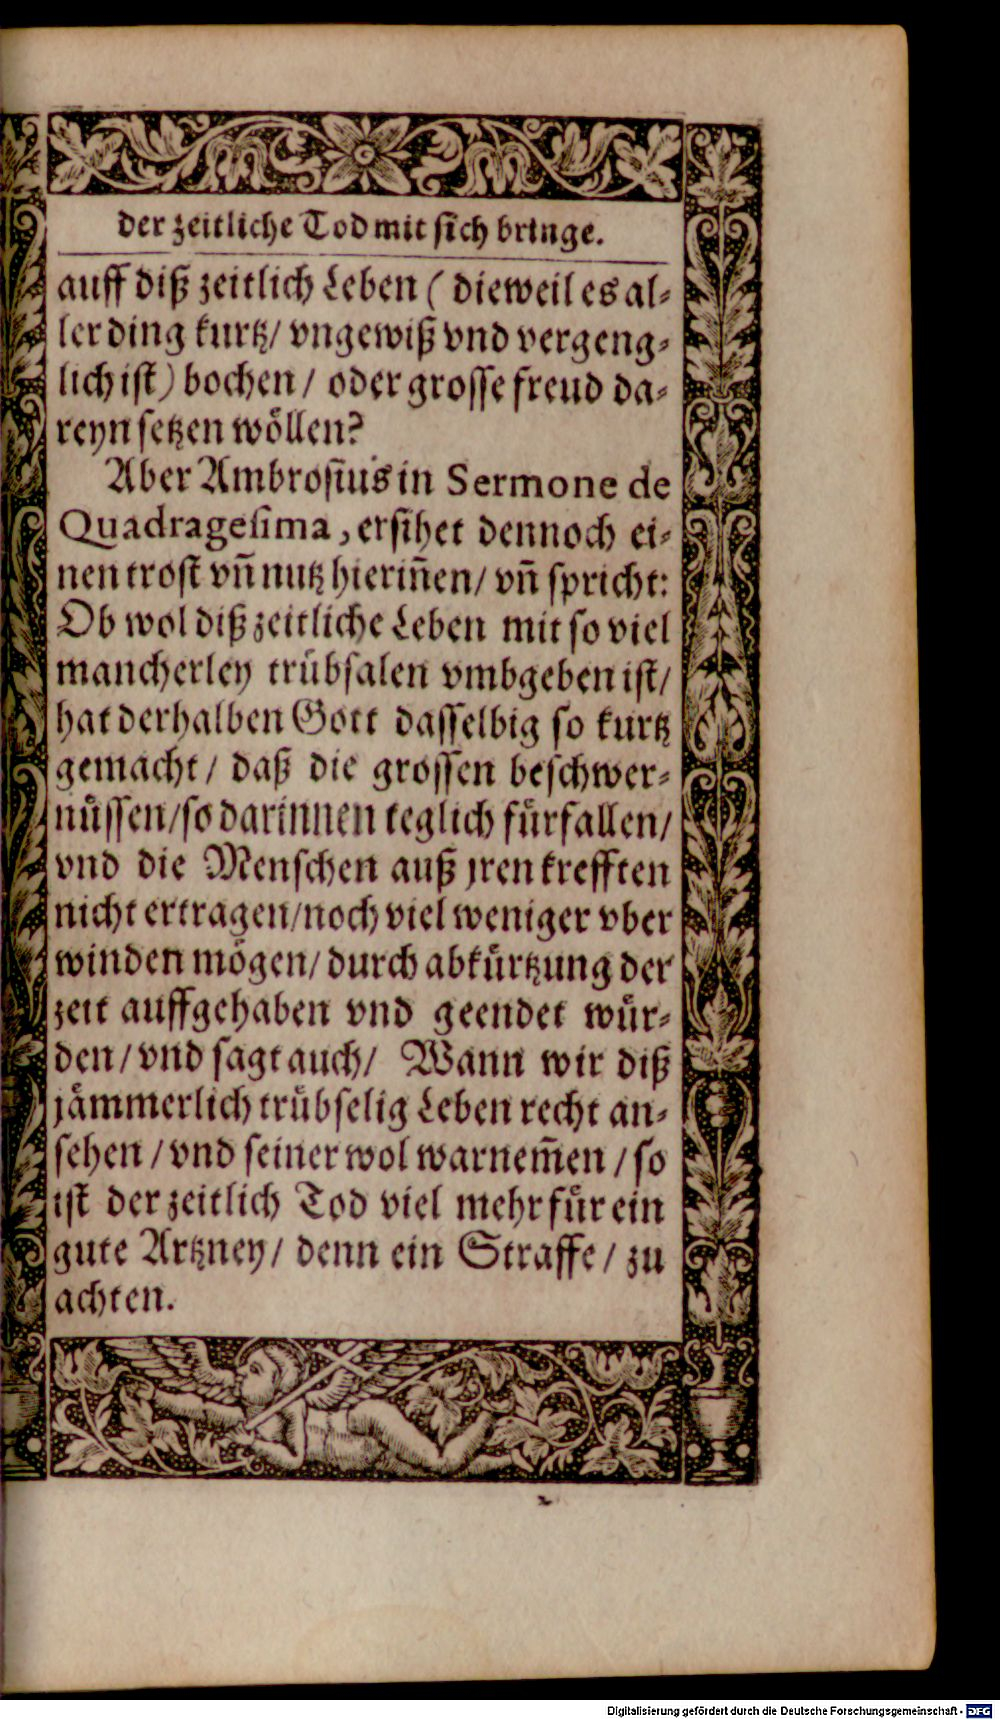 der zeitliche Tod mit sich bringe.
auff diß zeitlich Leben ( dieweil es al⸗
ler ding kurtz/ vngewiß vnd vergeng⸗
lich ist) bochen / oder grosse freud da⸗
reyn setzen woͤllen?
Aber Ambrosius in Sermone de
Quadragesima, ersihet dennoch ei⸗
nen trost vñ nutz hieriñen/ vñ spricht:
Ob wol diß zeitliche Leben mit so viel
mancherley truͤbsalen vmbgeben ist/
hat derhalben Gott dasselbig so kurtz
gemacht / daß die grossen beschwer⸗
nuͤssen/so darinnen teglich fuͤrfallen/
vnd die Menschen auß jren krefften
nicht ertragen/noch viel weniger vber
winden moͤgen/ durch abkuͤrtzung der
zeit auffgehaben vnd geendet wuͤr⸗
den/ vnd sagt auch/ Wann wir diß
jaͤmmerlich truͤbselig Leben recht an⸗
sehen / vnd seiner wol warnem̃en / so
ist der zeitlich Tod viel mehr fuͤr ein
gute Artzney/ denn ein Straffe / zu
achten.
Digitalisierung gefördert durch die Deutsche Forschungsgemeinschaft - DFG